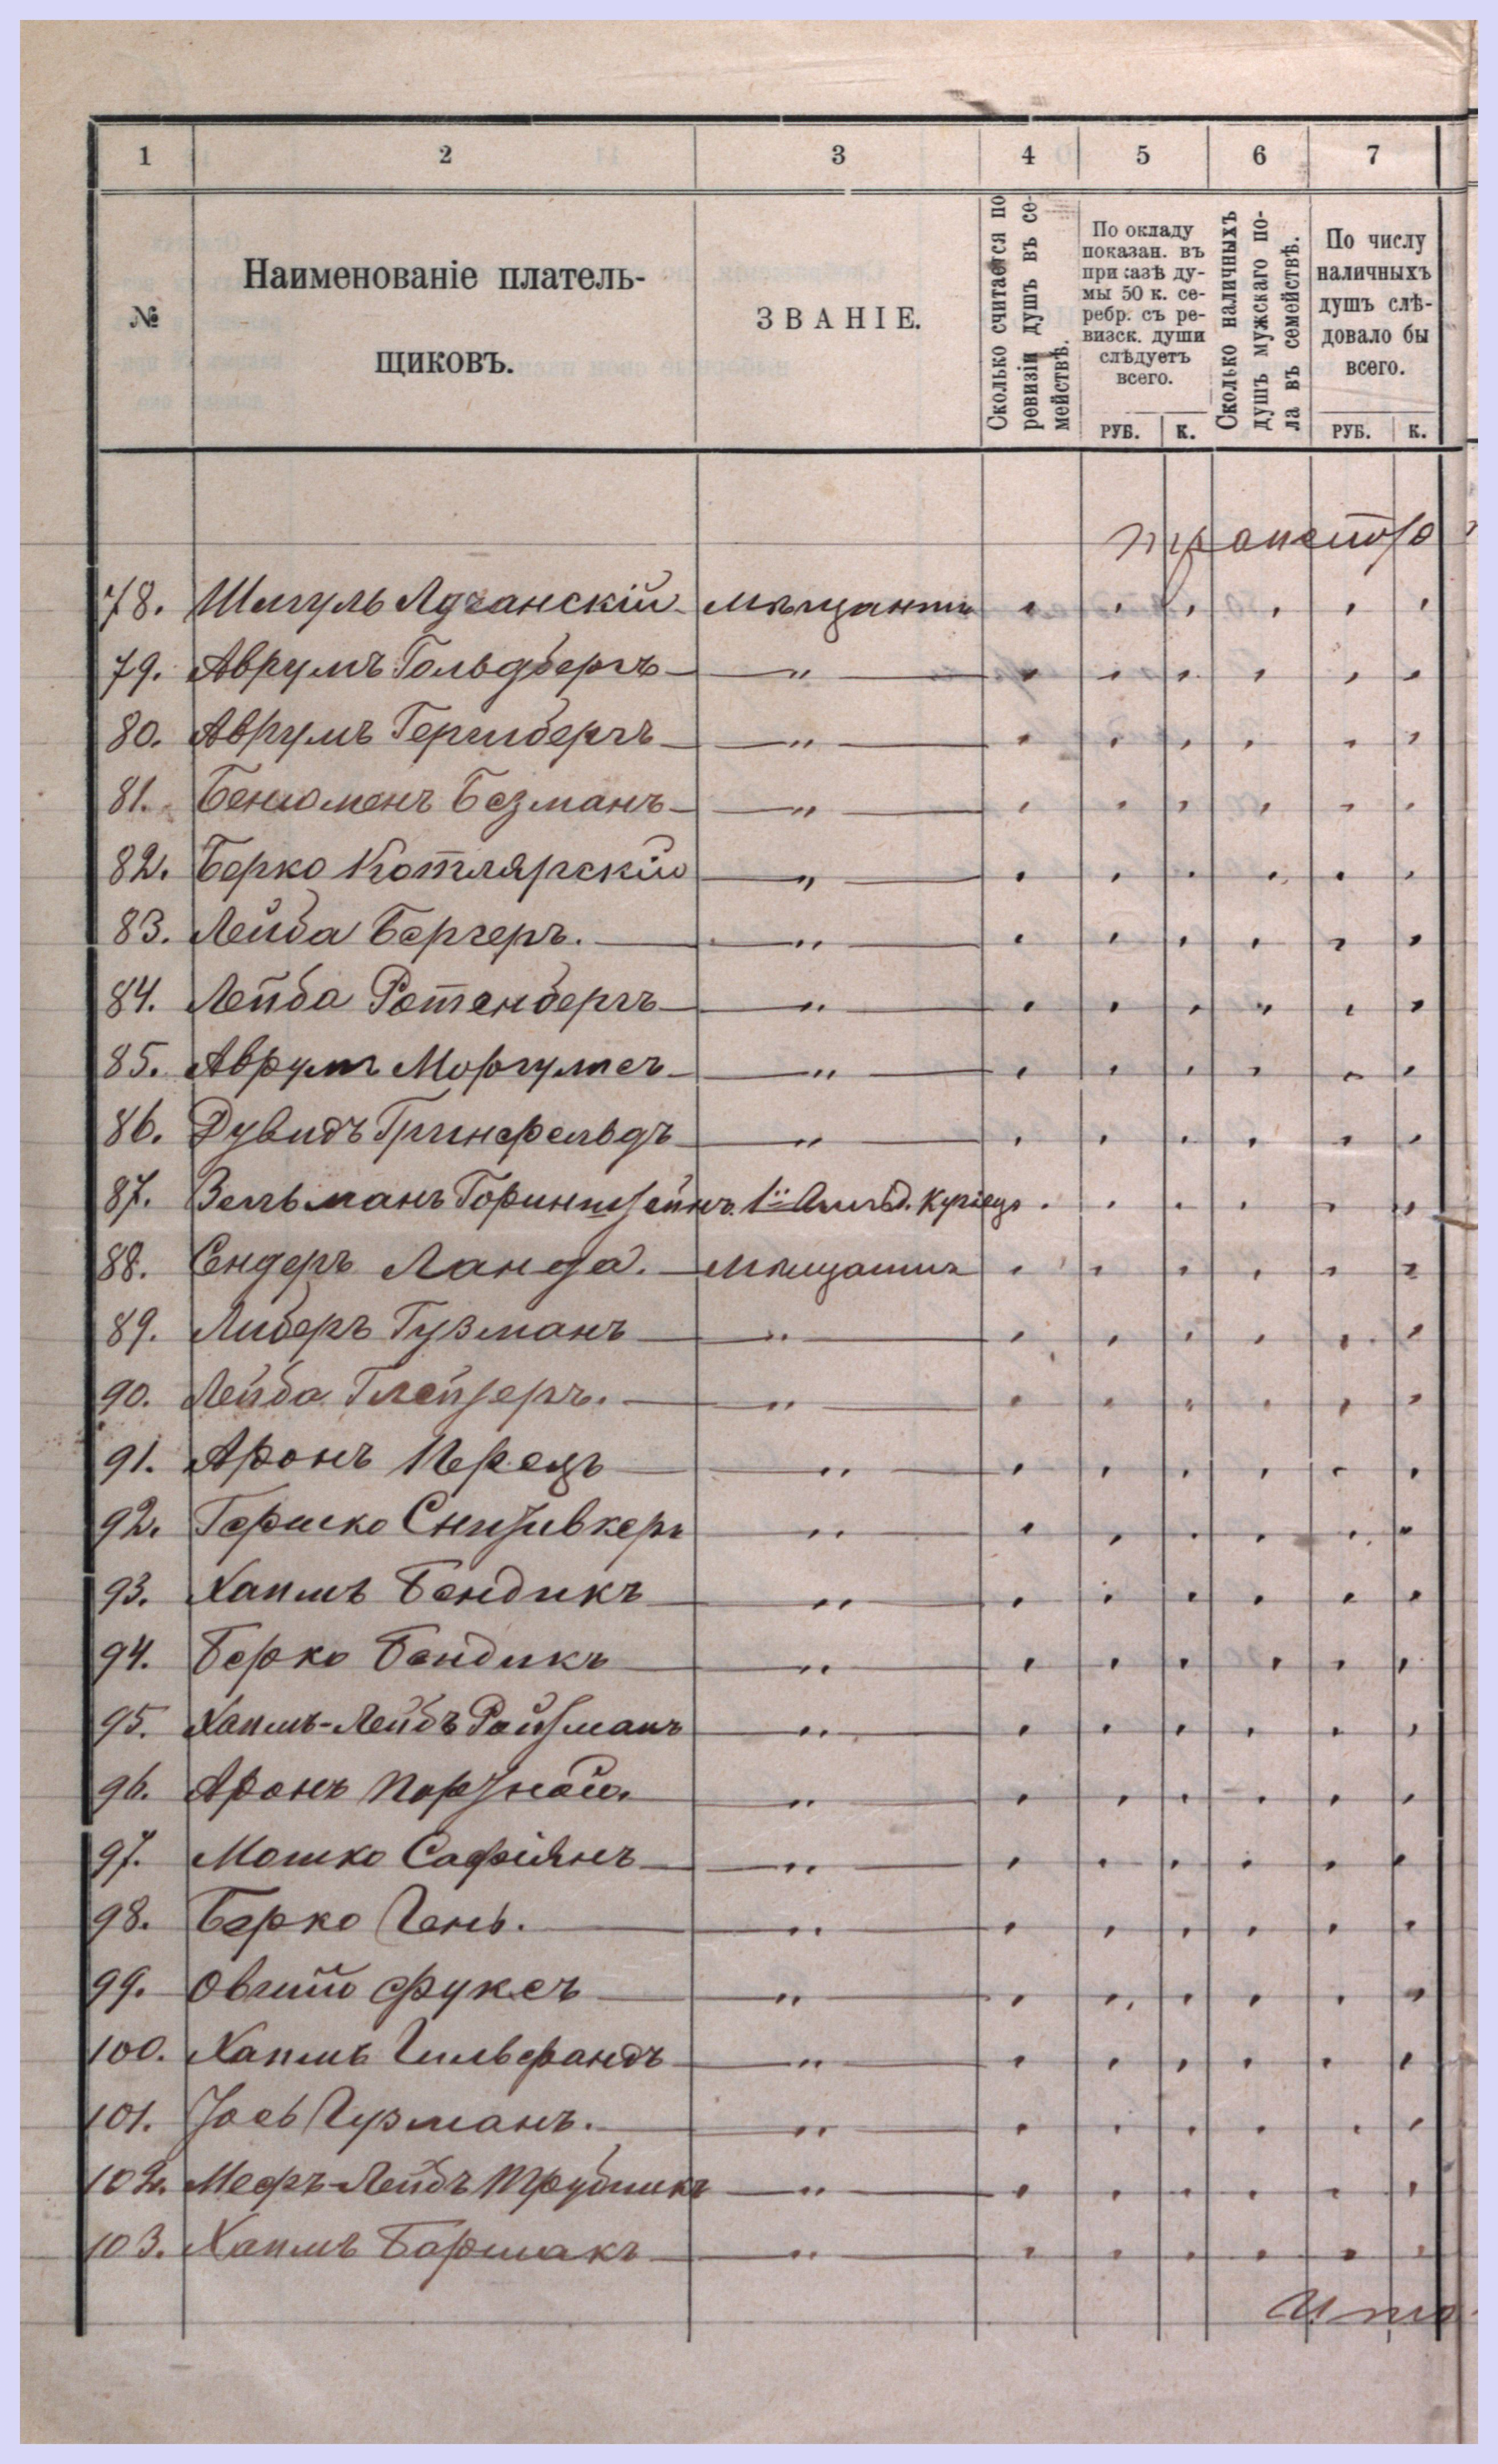 1 2 3 4 5 6 7
№
Наименованіе платель-
щиковъ.
ЗВАНІЕ.
Сколько считается по
ревизіи душъ въ се-
мействѣ.
По окладу
показан. въ
приказѣ ду-
мы 50 к. се-
ребр. съ ре-
визск. души
слѣдуетъ
всего.
РУБ. К.
Сколько наличныхъ
душъ мужскаго по-
ла въ семействѣ.
По числу
наличныхъ
душъ слѣ-
довало бы
всего.
РУБ. К.
транспортъ
78. Шмуль Ладчанскій мѣщанинъ
79. Аврумъ Гольдбергъ — " —
80. Аврумъ Гершбергъ — " —
81. Бенюменъ Безманъ — " —
82. Берко Котлярскій — " —
83. Лейба Бергеръ. — " —
84. Лейба Ротенбергъ — " —
85. Аврумъ Моргулисъ — " —
86. Дувидъ Гринфельдъ — " —
87. Зельманъ Горинштейнъ 1й Гильд. Купецъ
88. Сендеръ Ланда. мѣщанинъ
89. Либеръ Гузманъ — " —
90. Лейба Глейзеръ. — " —
91. Аронъ Перецъ — " —
92. Гершко Снизивкеръ — " —
93. Хаимъ Бендикъ — " —
94. Берко Бендикъ — " —
95. Хаимъ-Лейбъ Ройзманъ — " —
96. Аронъ Портной. — " —
97. Мошко Сафіянъ — " —
98. Берко Гень. — " —
99. Овший Фуксъ — " —
100. Хаимъ Гильфандъ — " —
101. Іось Гузманъ. — " —
102. Мееръ-Лейбъ Трубникъ — " —
103. Хаимъ Боршакъ — " —
Ито